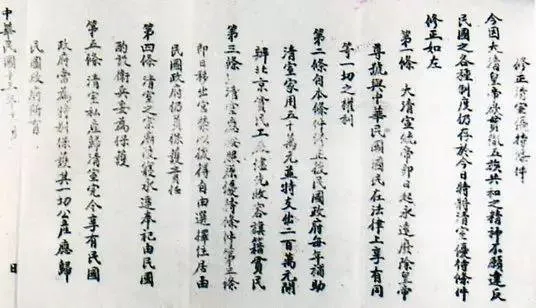 修正清室優待條件
今因大清皇帝欲貫徹五族共和之精神不願違反
民國之各種制度仍存於今日特將清室優待條件
修正如左
第一條 大清宣統帝即日起永遠廢除皇帝
尊號與中華民國國民在法律上享有同
等一切之權利
第二條自本條件修正後民國政府每年補助
清室家用五十萬元並特支出二百萬元開
辦北京貧民工廠儘先收容旗籍貧民
第三條 清室應按照原優待條件第三條
即日移出宮禁以後得自由選擇住居但
民國政府仍負保護責任
第四條 清室之宗廟陵寢永遠奉祀由民國
酌設衛兵妥為保護
第五條 清室私產歸清室完全享有民國
政府當為特別保護其一切公產應歸
民國政府所有
中華民國十三年十一月 日